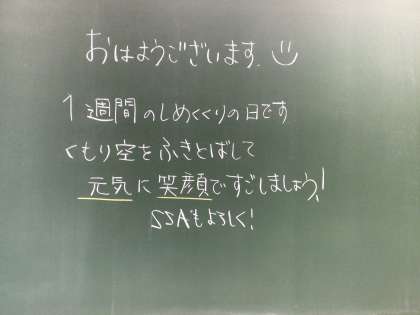 おはようございます. ☺
1週間のしめくくりの日です
くもり空をふきとばして
元気に笑顔ですごしましょう!
SSAもよろしく!